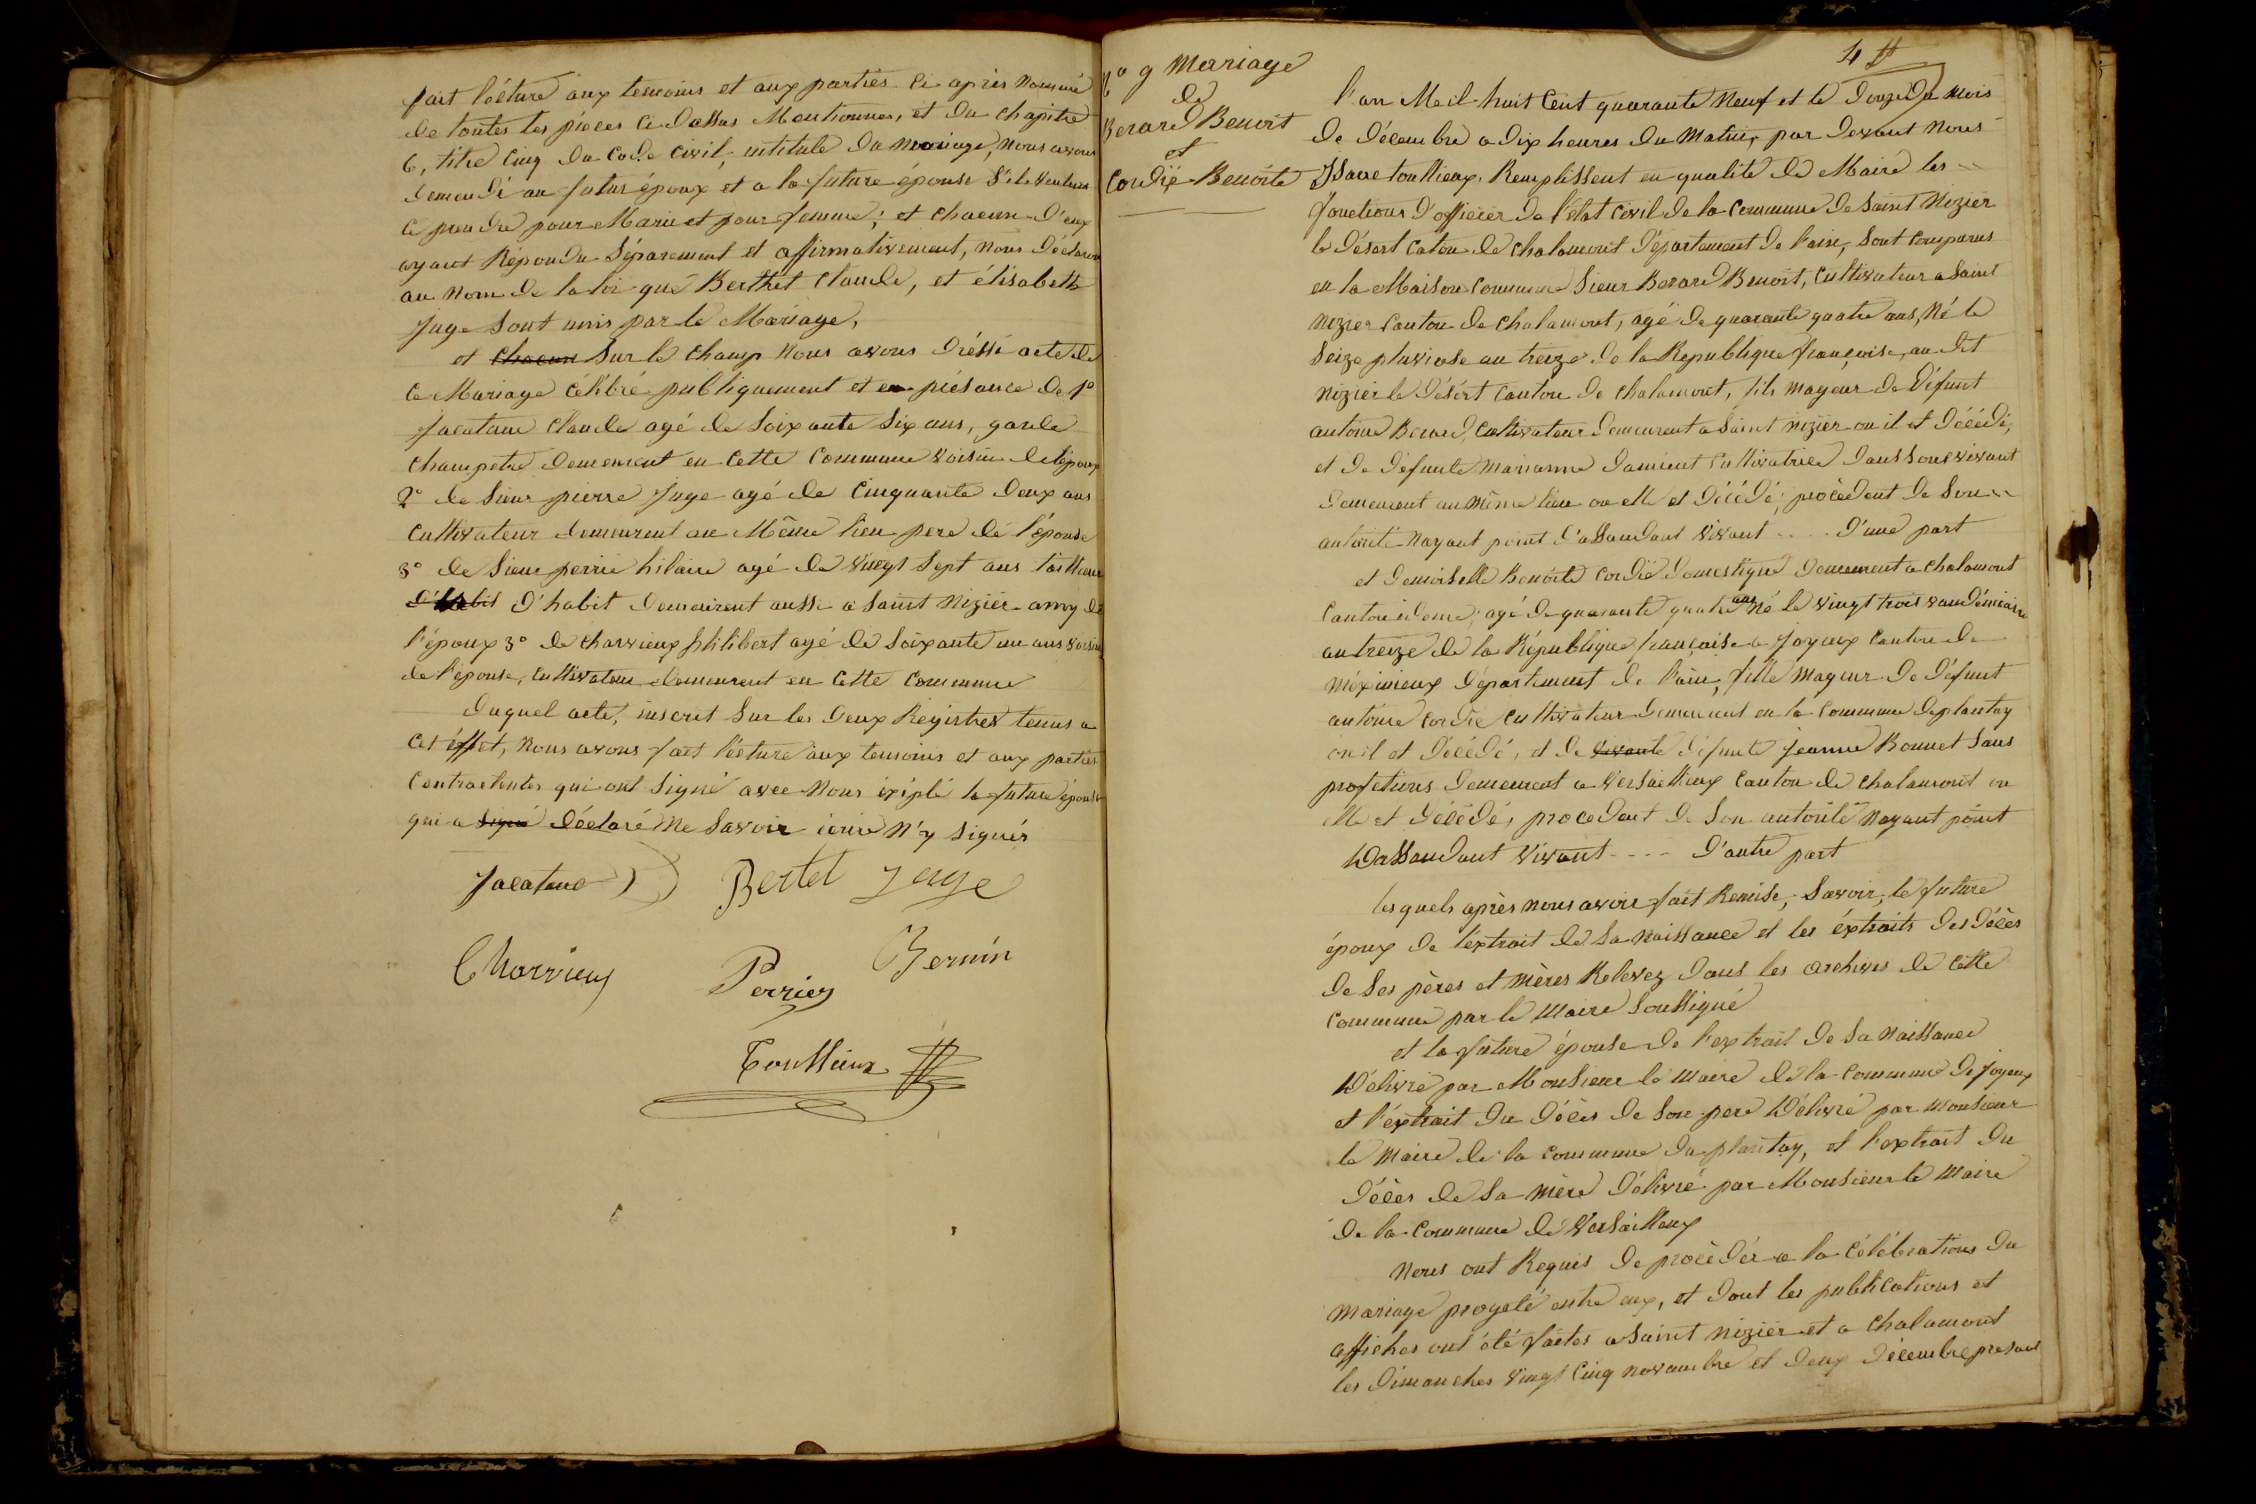 fait lécture aux temoins et aux parties ci après nommé
de toutes les pièces ci dessus Mentionnes, et du chapitre
6, titre cinq du code civil, intitule du mariage, nous avons
demandé au futur époux et a la future épouse s'ils veulent
ce prendre pour Marie et pour femme; et chacun d'eux
ayant Répondu Séparement et affirmativement, nous déclaron
au nom de la loi que Berthet Claude, et élisabeth
Juge Sont unis par le Mariage,
et chacun Sur le champ nous avons dréssé acte de
ce Mariage célébré publiquement et en présance de 1°
Jacatone Claude agé de Soixante Six ans, garde
champetre demeurent en cette commune voisin de l'époux
2° de Sieur pierre Juge agé de cinquante deux ans
cultivateur demeurent au Même lieu pere de l'épouse
3° de Sieur perrié hilaire agé de vingt Sept ans tailleur
d'habit d'habit demeurent aussi a Saint Nizier amy de
l'époux 3° de Charvieux philibert agé de Soixante un ans voisin
de l'épouse, cultivateur demeurent en cette commune
duquel acte, inscrit Sur les deux Registres tenus a
cet éffet, nous avons fait lécture aux temoins et aux parties
contractentes qui ont Signé avec nous éxépté la future épouse
qui a signé déclaré ne Savoir écrire n'y signér
Jacatone Bertet Juge
Charvieux Perrier Bernin
Toullieux
4
N° 9 Mariage
de
Berard Benoit
et
Cordié Benoite
l'an Meil huit Cent quarante Neuf et le douze du mois
de décembre a dix heures du Matin, par devant nous
Isaac toullieux Remplissent en qualité de Maire les
fonctions d'officier de l'état civil de la commune de Saint Nizier
le désert caton de chalamont département de l'ain, Sont comparus
en la Maison commune Sieur Berard Benoit, cultivateur a Saint
Nizier canton de chalamont, agé de quarante quatre ans, Né le
Seize pluviose an treize de la Republique françoise, au dit
Nizier le désert canton de chalamont, fils mayeur de défunt
antoine Berard, cultivateur demeurent a Saint nizier ou il et décédé,
et de défunte marianne damient cultivatrice dans Son vivant
demeurent au même lieu ou elle et décédé; procèdent de Son
autorité nayant point d'assandant vivant .... d'une part
et demoiselle Benoite cordié domestique demeurent a chalamont
canton idem; agé de quarante quatre ans né le vingt trois vandémiaire
an treize de la République françoise a Joyeux canton de
méximieux département de l'ain, fille mayeur de défunt
antoine cordié cultivateur demeurent en la commune du plantay
ou il et décédé, et de vivante défunte Jeanne Bonnet Sans
profetions demeurent a versaillieux canton de chalamont ou
elle et décédé, procedant de Son autorité nayant point
dassandant vivant ---- d'autre part
lesquels après nous avoir fait Remise, Savoir, le future
époux de l'extrait de Sa naissance et les éxtraits des décès
de Ses pères et mères Relevez dans les archives de cette
commune par le Maire Soussigné
et la future épouse de l'extrait de Sa naissance
délivré par Monsieur le Maire de la commune de Joyeux
et l'éxtrait du décès de Son pere délivré par monsieur
le Maire de la commune du plantay, et l'extrait du
décès de Sa mère délivré par Monsieur le Maire
de la commune de Versailleux
nous ont Requis de procèdér a la célébrations du
mariage progeté entre eux, et dont les publications et
affiches ont été faites a Saint nizier et a chalamont
les dimanches vingt cinq novambre et deux décembre presant